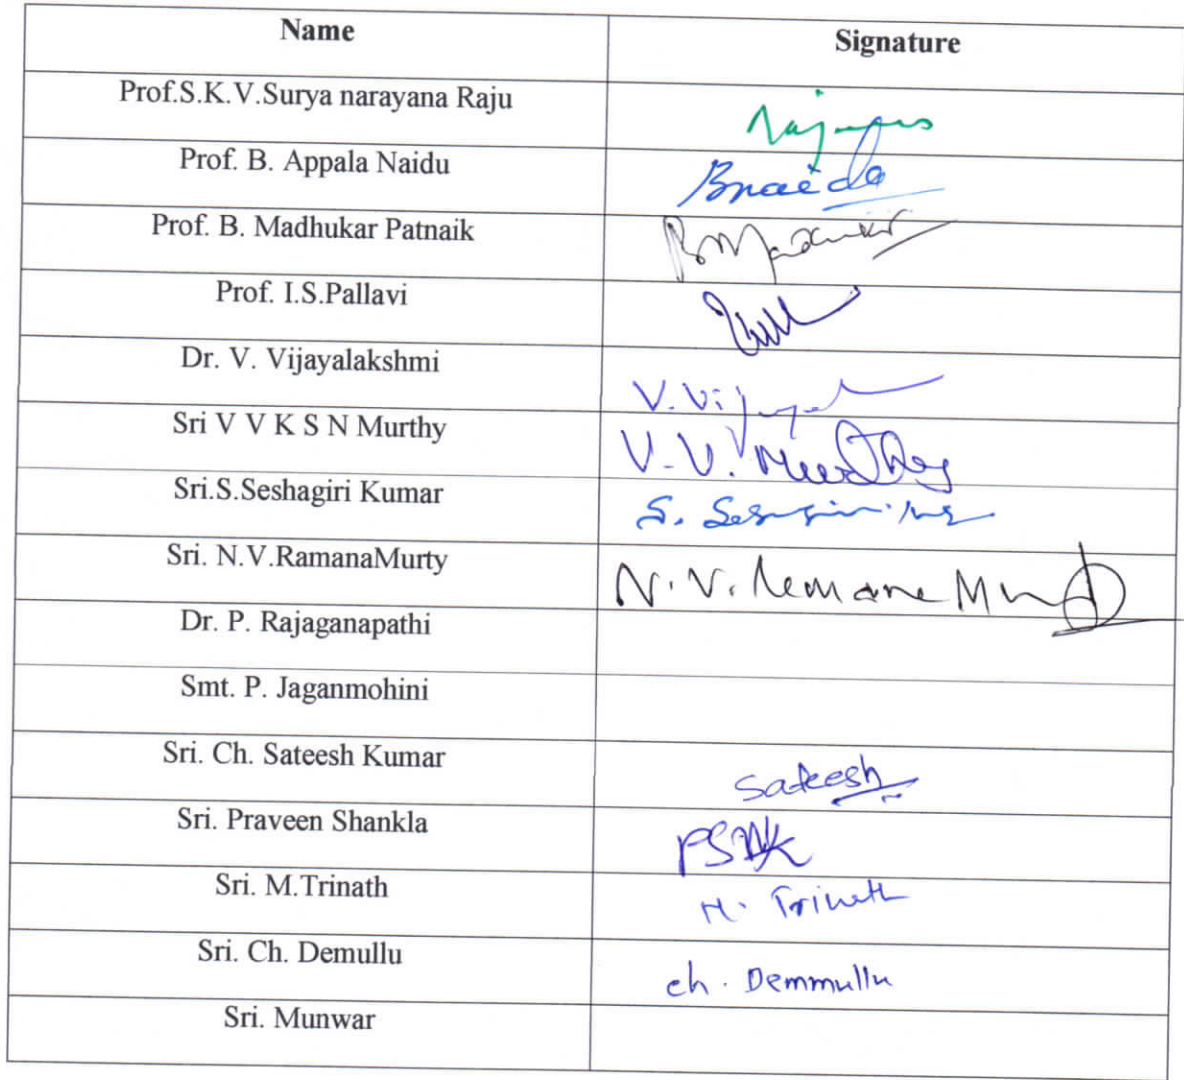 Name Signature
Prof.S.K.V.Surya narayana Raju
Prof. B. Appala Naidu Bnaidu
Prof. B. Madhukar Patnaik B Madhukar
Prof. I.S.Pallavi
Dr. V. Vijayalakshmi V. Vijaya
Sri V V K S N Murthy V. V. Murthy
Sri.S.Seshagiri Kumar S.
Sri. N.V.RamanaMurty N. V. Ramana
Dr. P. Rajaganapathi
Smt. P. Jaganmohini
Sri. Ch. Sateesh Kumar Sateesh
Sri. Praveen Shankla
Sri. M.Trinath M. Trinath
Sri. Ch. Demullu ch. Demmullu
Sri. Munwar